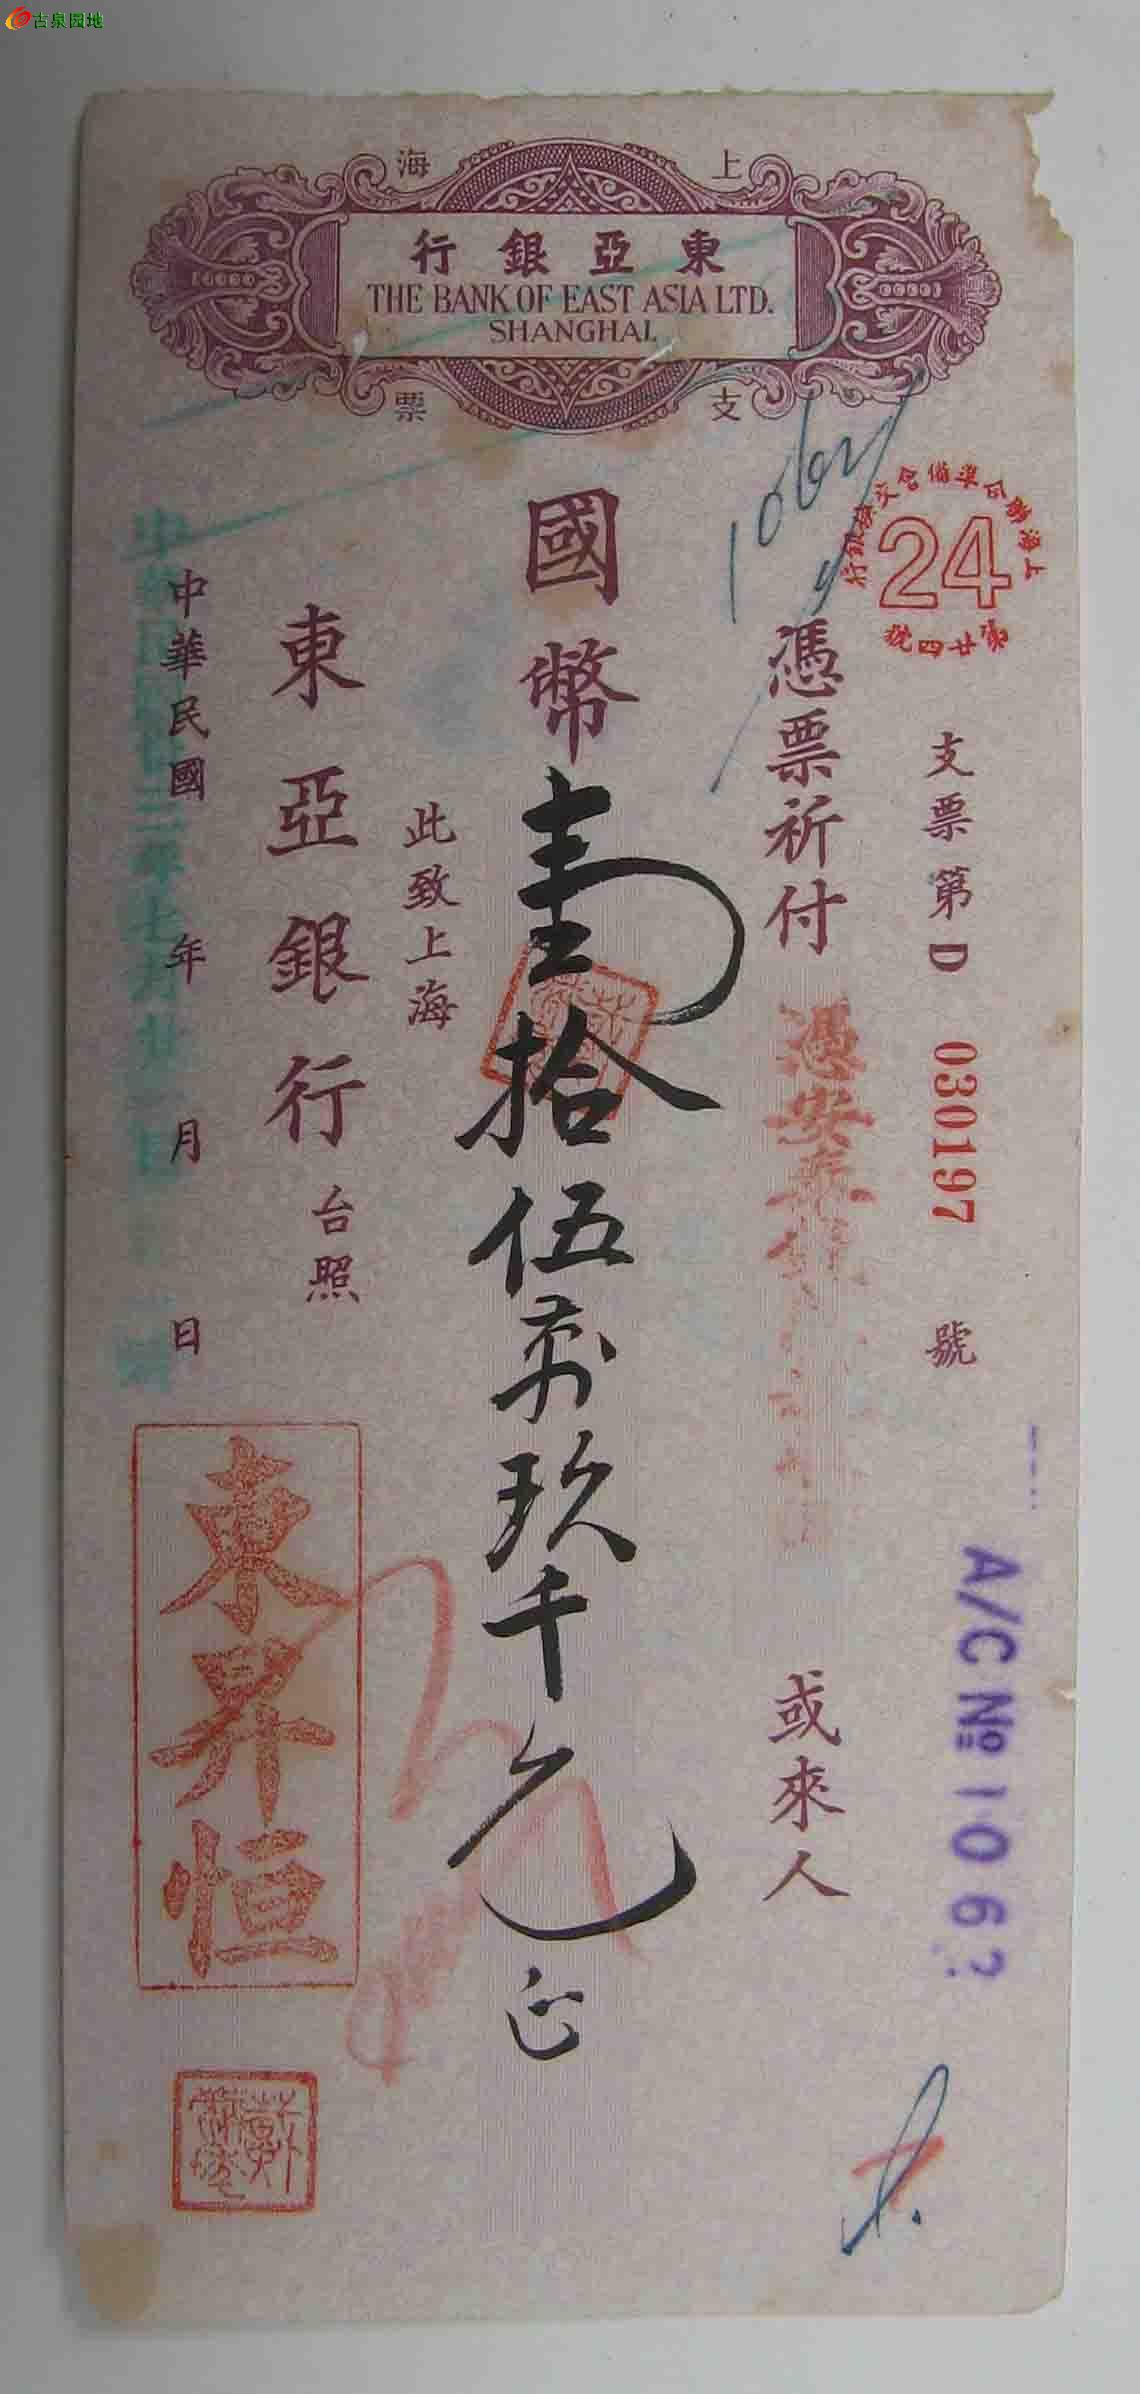 古泉园地
上海
東亞銀行
THE BANK OF EAST ASIA LTD.
SHANGHAI.
支票
上海聯合準備會交換銀行
24
第廿四號
支票第D 030197 號
A/C No 1063
憑票祈付
或來人
國幣壹拾伍萬玖千元正
此致上海
東亞銀行台照
中華民國 年 月 日
東昇恒